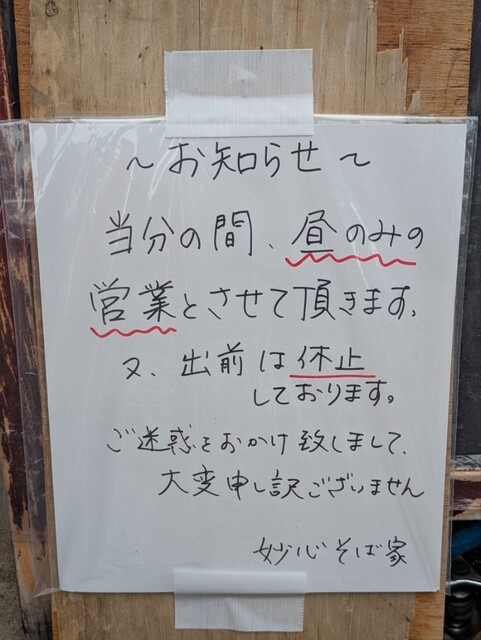 ～お知らせ～
当分の間、昼のみの
営業とさせて頂きます。
又、出前は休止
しております。
ご迷惑をおかけ致しまして、
大変申し訳ございません
妙心そば家